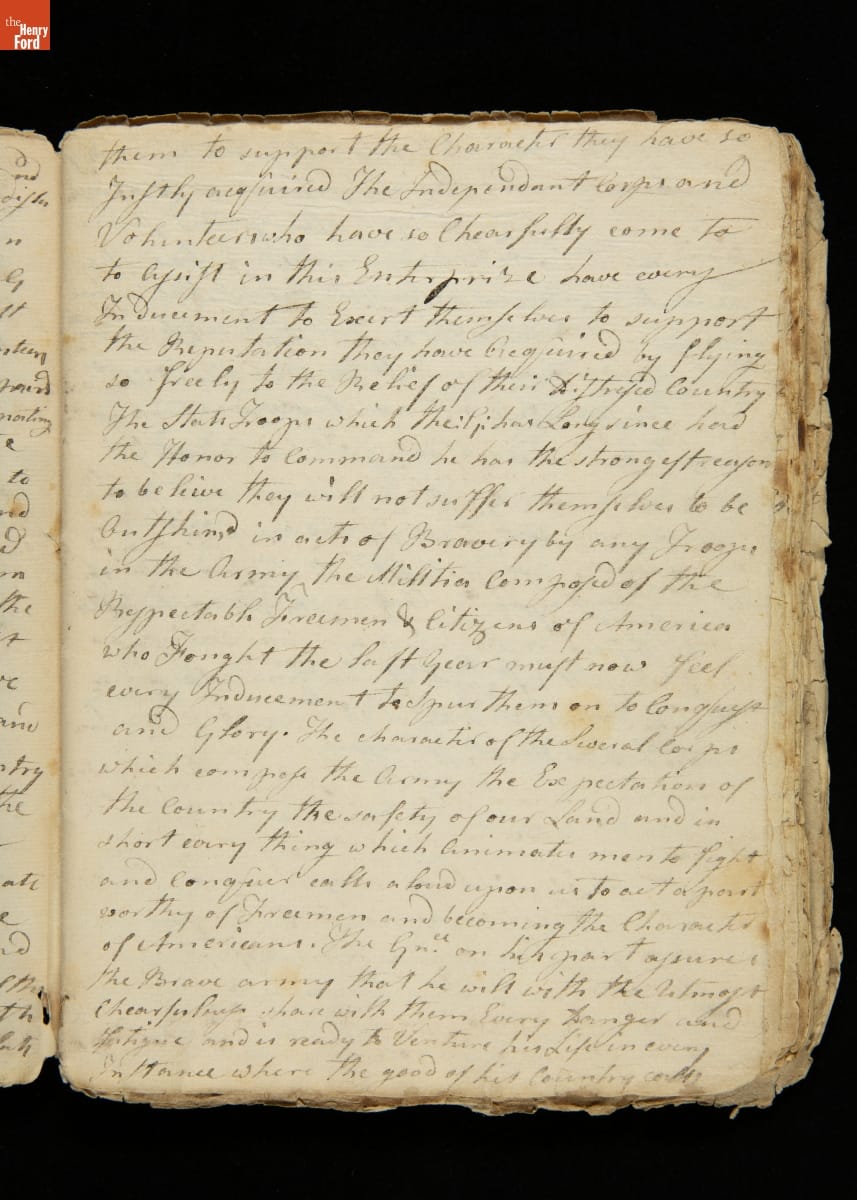 the
Henry
Ford
them to support the Character they have so
Justly acquired The Independant Corps and
Volunteers who have so Chearfully come to
to assist in this Enterprize have every
Inducement to Exert themselves to support
the Reputation they have Acquired by flying
so freely to the Relief of their Distressed Country
The State Troops which the has Long since had
the Honor to Command he has the strongest reason
to beleive they will not suffer themselves to be
Outshind in acts of Bravery by any Troops
in the Army the Militia Composed of the
Respectable Freemen & Citizens of America
who Fought the last Year must now feel
every Inducement to Spur them on to Conquest
and Glory. The character of the Several Corps
which compose the Army the Expectation of
the Country the safety of our Land and in
short every thing which Animates men to fight
and Conquer calls aloud upon us to act a part
worthy of Freemen and becoming the Character
of Americans. The Gn.ll on his part assures
the Brave army that he will with the Utmost
Chearfulness share with them Every Danger and
fatigue and is ready to Venture his Life in every
Instance where the good of his Country calls